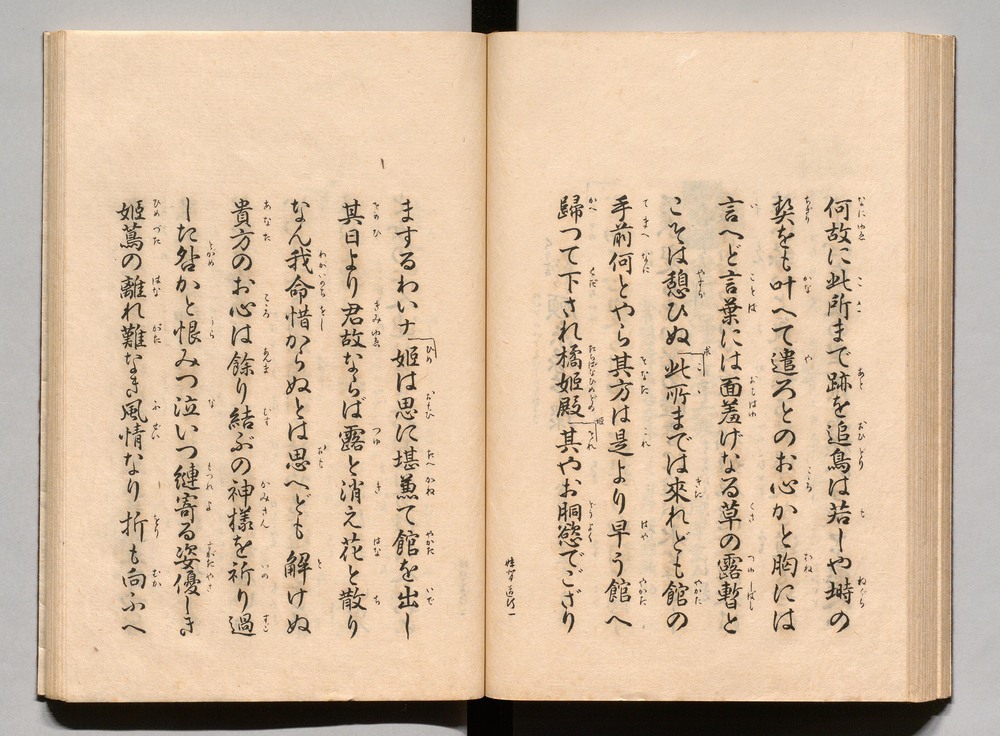 何故に此所まで跡を追鳥は若しや塒の
契をも叶へて遣ろとのお心かと胸には
言へど言葉には面羞げなる草の露暫と
こそは憩ひぬ此所までは來れども館の
手前何とやら其方は是より早う館へ
歸つて下され橘姫殿其やお胴慾でござり
まするわいナ姫は思に堪兼て館を出し
其日より君故ならば露と消え花と散り
なん我命惜からぬとは思へども解けぬ
貴方のお心は餘り結ぶの神樣を祈り過
した咎かと恨みつ泣いつ縺寄る姿優しき
姫蔦の離れ難なき風情なり折も向ふへ